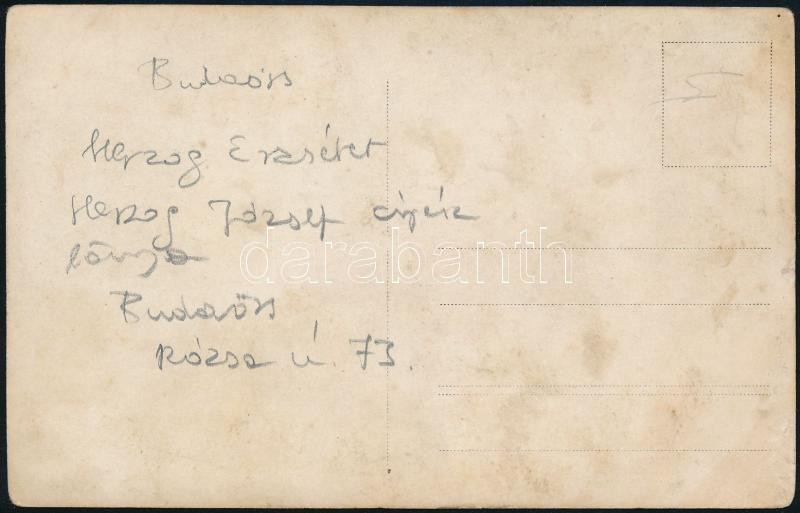 Budaörs
Herzog Erzsébet
Herzog József cipész
lánya
darabanth
Budaörs
Rózsa u. 73.